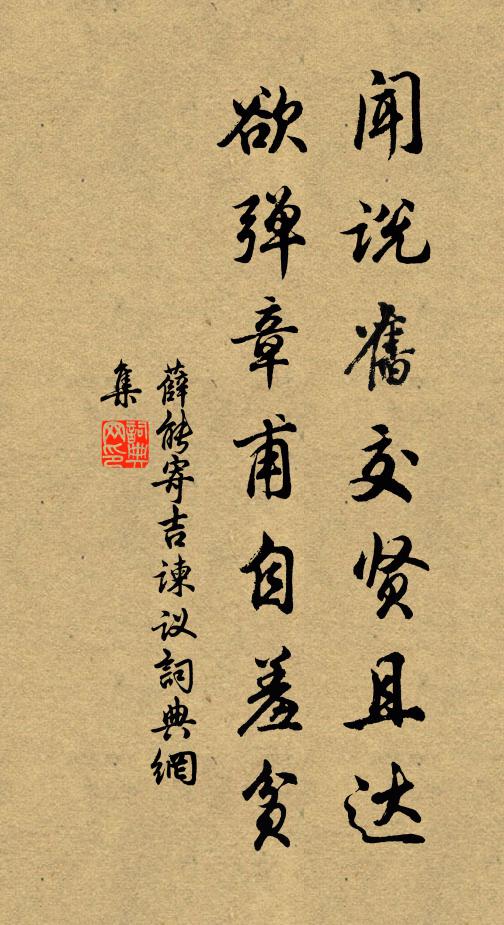 闻说旧交贤且达
欲弹章甫自羞贫
薛能寄吉谏议詞典網
集
詞典
网印